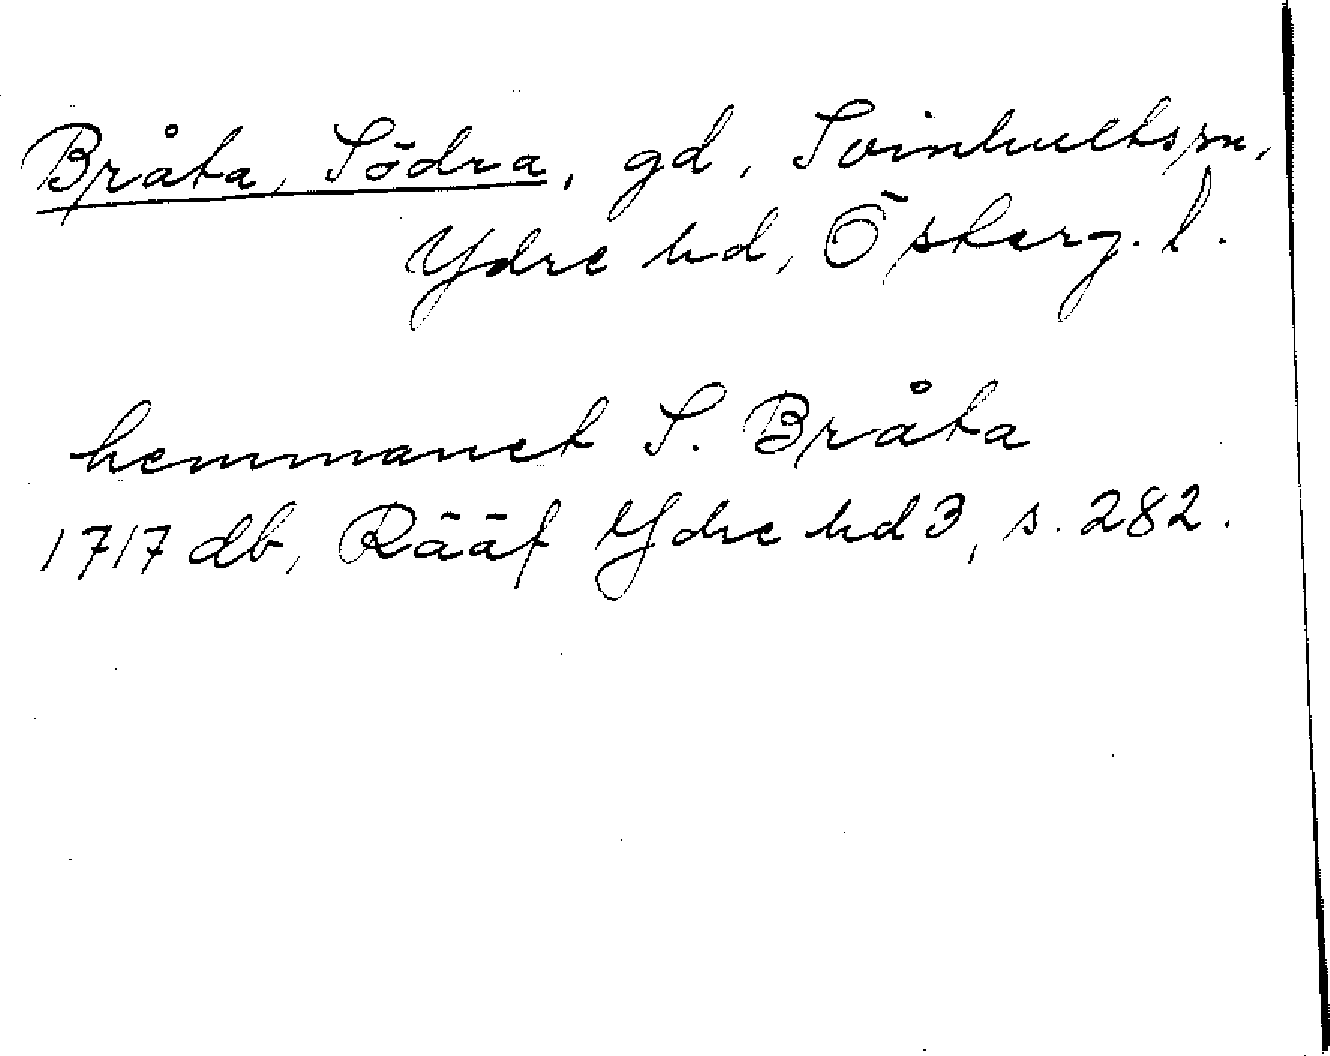 Bråta, Södra, gd, Svinhults sn,
Ydre hd, Österg. l.
hemmanet S. Bråta
1717 db, Rääf Ydre hd 3, s. 282.